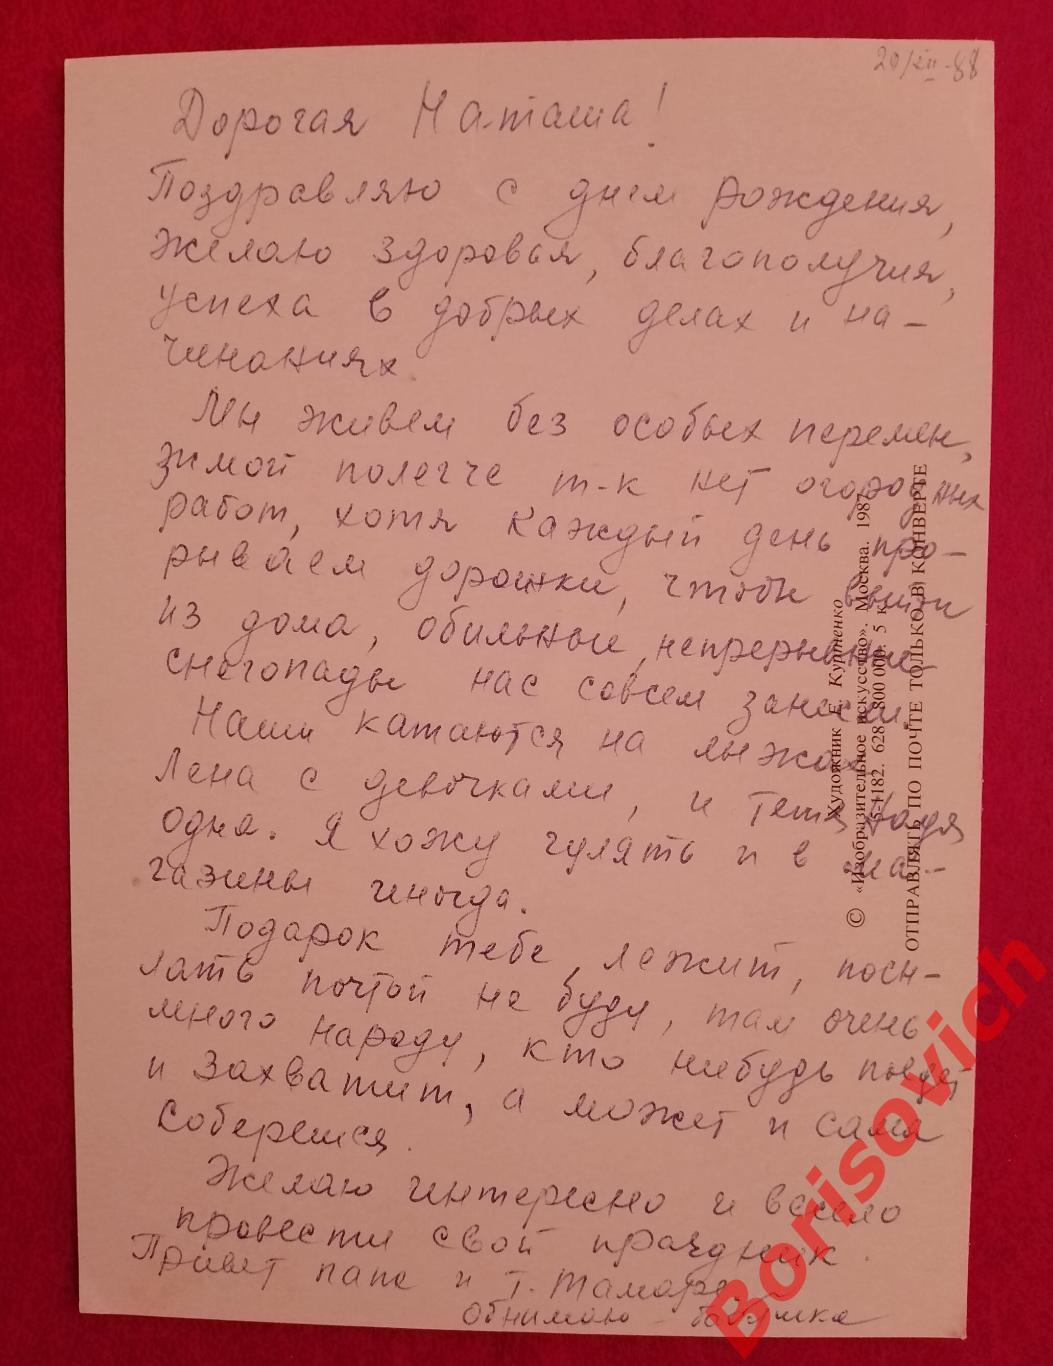 20/XII-88
Дорогая Наташа!
Поздравляю с днем рождения,
желаю здоровья, благополучия,
успеха в добрых делах и на-
чинаниях.
Мы живем без особых перемен,
зимой полегче т-к нет огородных
работ, хотя каждый день про-
рываем дорожки, чтобы выйти
из дома, обильные, непрерывные
снегопады нас совсем занесли.
Наши катаются на лыжах
Лена с девочками, и тетя Надя
одна. Я хожу гулять и в ма-
газины иногда.
Подарок тебе лежит, посы-
лать почтой не буду, там очень
много народу, кто нибудь поедет
и захватит, а может и сама
соберешся.
Желаю интересно и весело
провести свой праздник.
Привет папе и т. Тамаре.
Обнимаю - бабушка
Художник Е. Куртенко
© «Изобразительное искусство». Москва. 1987
5-1182. 628. 800 000. 5 к.
ОТПРАВЛЯТЬ ПО ПОЧТЕ ТОЛЬКО В КОНВЕРТЕ
Borisovich